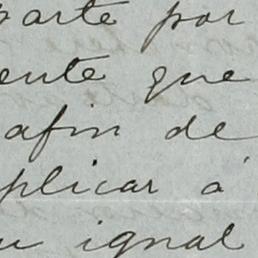 parte por
ente que
afin de
plicar á
u ignal